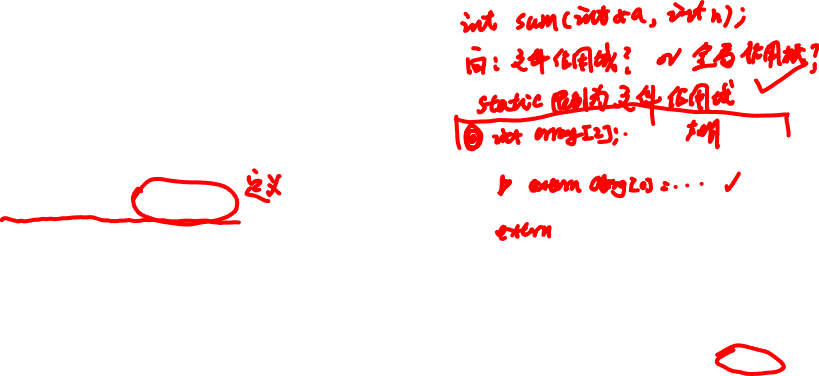 int sum(int *a, int n);
问: 文件作用域? or 全局作用域?
static 限制为文件作用域
int array[2];
定义
extern array[0] = ... ✓
extern